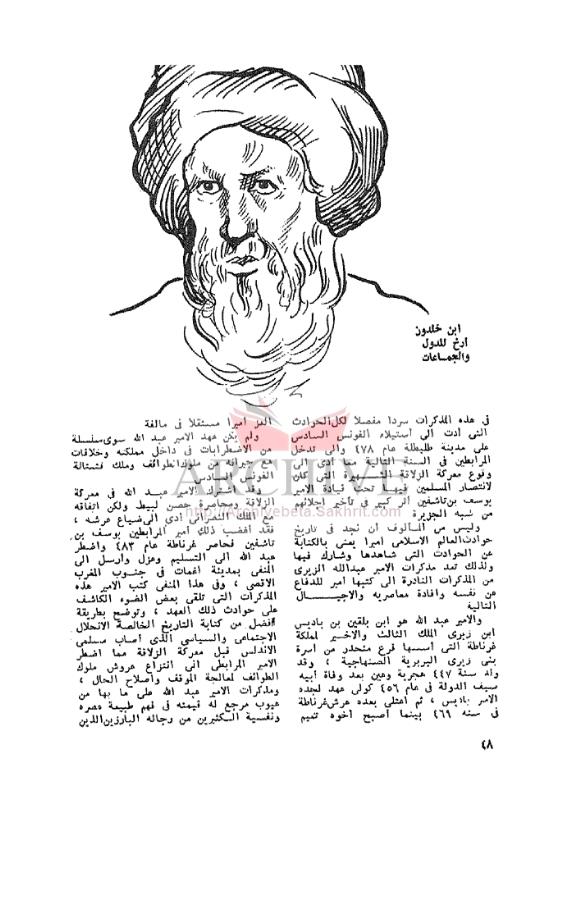 ابن خلدون
ارخ للدول
والجماعات
في هذه المذكرات سردا مفصلا لكل الحوادث
التي ادت الى استيلاء الفونس السادس
على مدينة طليطلة عام ٤٧٨ والى تدخل
المرابطين في السنة التالية مما أدى الى
وقوع معركة الزلاقة الشهيرة التي كان
لانتصار المسلمين فيها تحت قيادة الامير
يوسف بن تاشفين أثر كبير في تأخير اجلائهم
من شبه الجزيرة
وليس من المألوف ان نجد في تاريخ
حوادث العالم الاسلامي اميرا يعنى بالكتابة
عن الحوادث التي شاهدها وشارك فيها
ولذلك تعد مذكرات الامير عبدالله الزيرى
من المذكرات النادرة الى كتبها امير للدفاع
عن نفسه وافادة معاصريه والاجيــــال
التالية
والامير عبد الله هو ابن بلقين بن باديس
ابن زيرى الملك الثالث والاخير لمملكة
غرناطة التى أسسها فرع منحدر من اسرة
بنى زيرى البربرية الصنهاجية ، وقد
ولد سنة ٤٤٧ هجرية وعين بعد وفاة أبيه
سيف الدولة في عام ٤٥٦ كولى عهد لجده
الامير باديس ، ثم اعتلى بعده عرش غرناطة
في سنة ٤٦٩ بينما أصبح أخوه تميم
المز اميرا مستقلا في مالقة
ولم يكن عهد الامير عبد الله سوى سلسلة
من الاضطرابات في داخل مملكته وخلافات
مع جيرانه ملوك الطوائف وملك قشتالة
الفونس السادس
وقد اشترك الامير عبد الله في معركة
الزلاقة ومحاصرة حصن لبيط ولكن اتفاقه
مع الملك النصراني أدى الى ضياع عرشه ،
فقد اغضب ذلك أمير المرابطين يوسف بن
تاشفين فحاصر غرناطة عام ٤٨٣ واضطر
عبد الله الى التسليم وعزل وأرسل الى
المنفى بمدينة اغمات في جنوب المغرب
الاقصى ، وفى هذا المنفى كتب الامير هذه
المذكرات التى تلقى بعض الضوء الكاشف
على حوادث ذلك العهد ، وتوضح بطريقة
أفضل من كتابة التاريخ الخالصة الانحلال
الاجتماعى والسياسى الذى أصاب مسلمى
الاندلس قبل معركة الزلاقة مما اضطر
الامير المرابطى الى انتزاع عروش ملوك
الطوائف لمعالجة الموقف واصلاح الحال ،
ومذكرات الامير عبد الله على ما بها من
عيوب مرجع له قيمته في فهم طبيعة عصره
ونفسية الكثيرين من رجاله البارزين الذين
٤٨
ARCHIVE
http://Archivebeta.Sakhrit.com